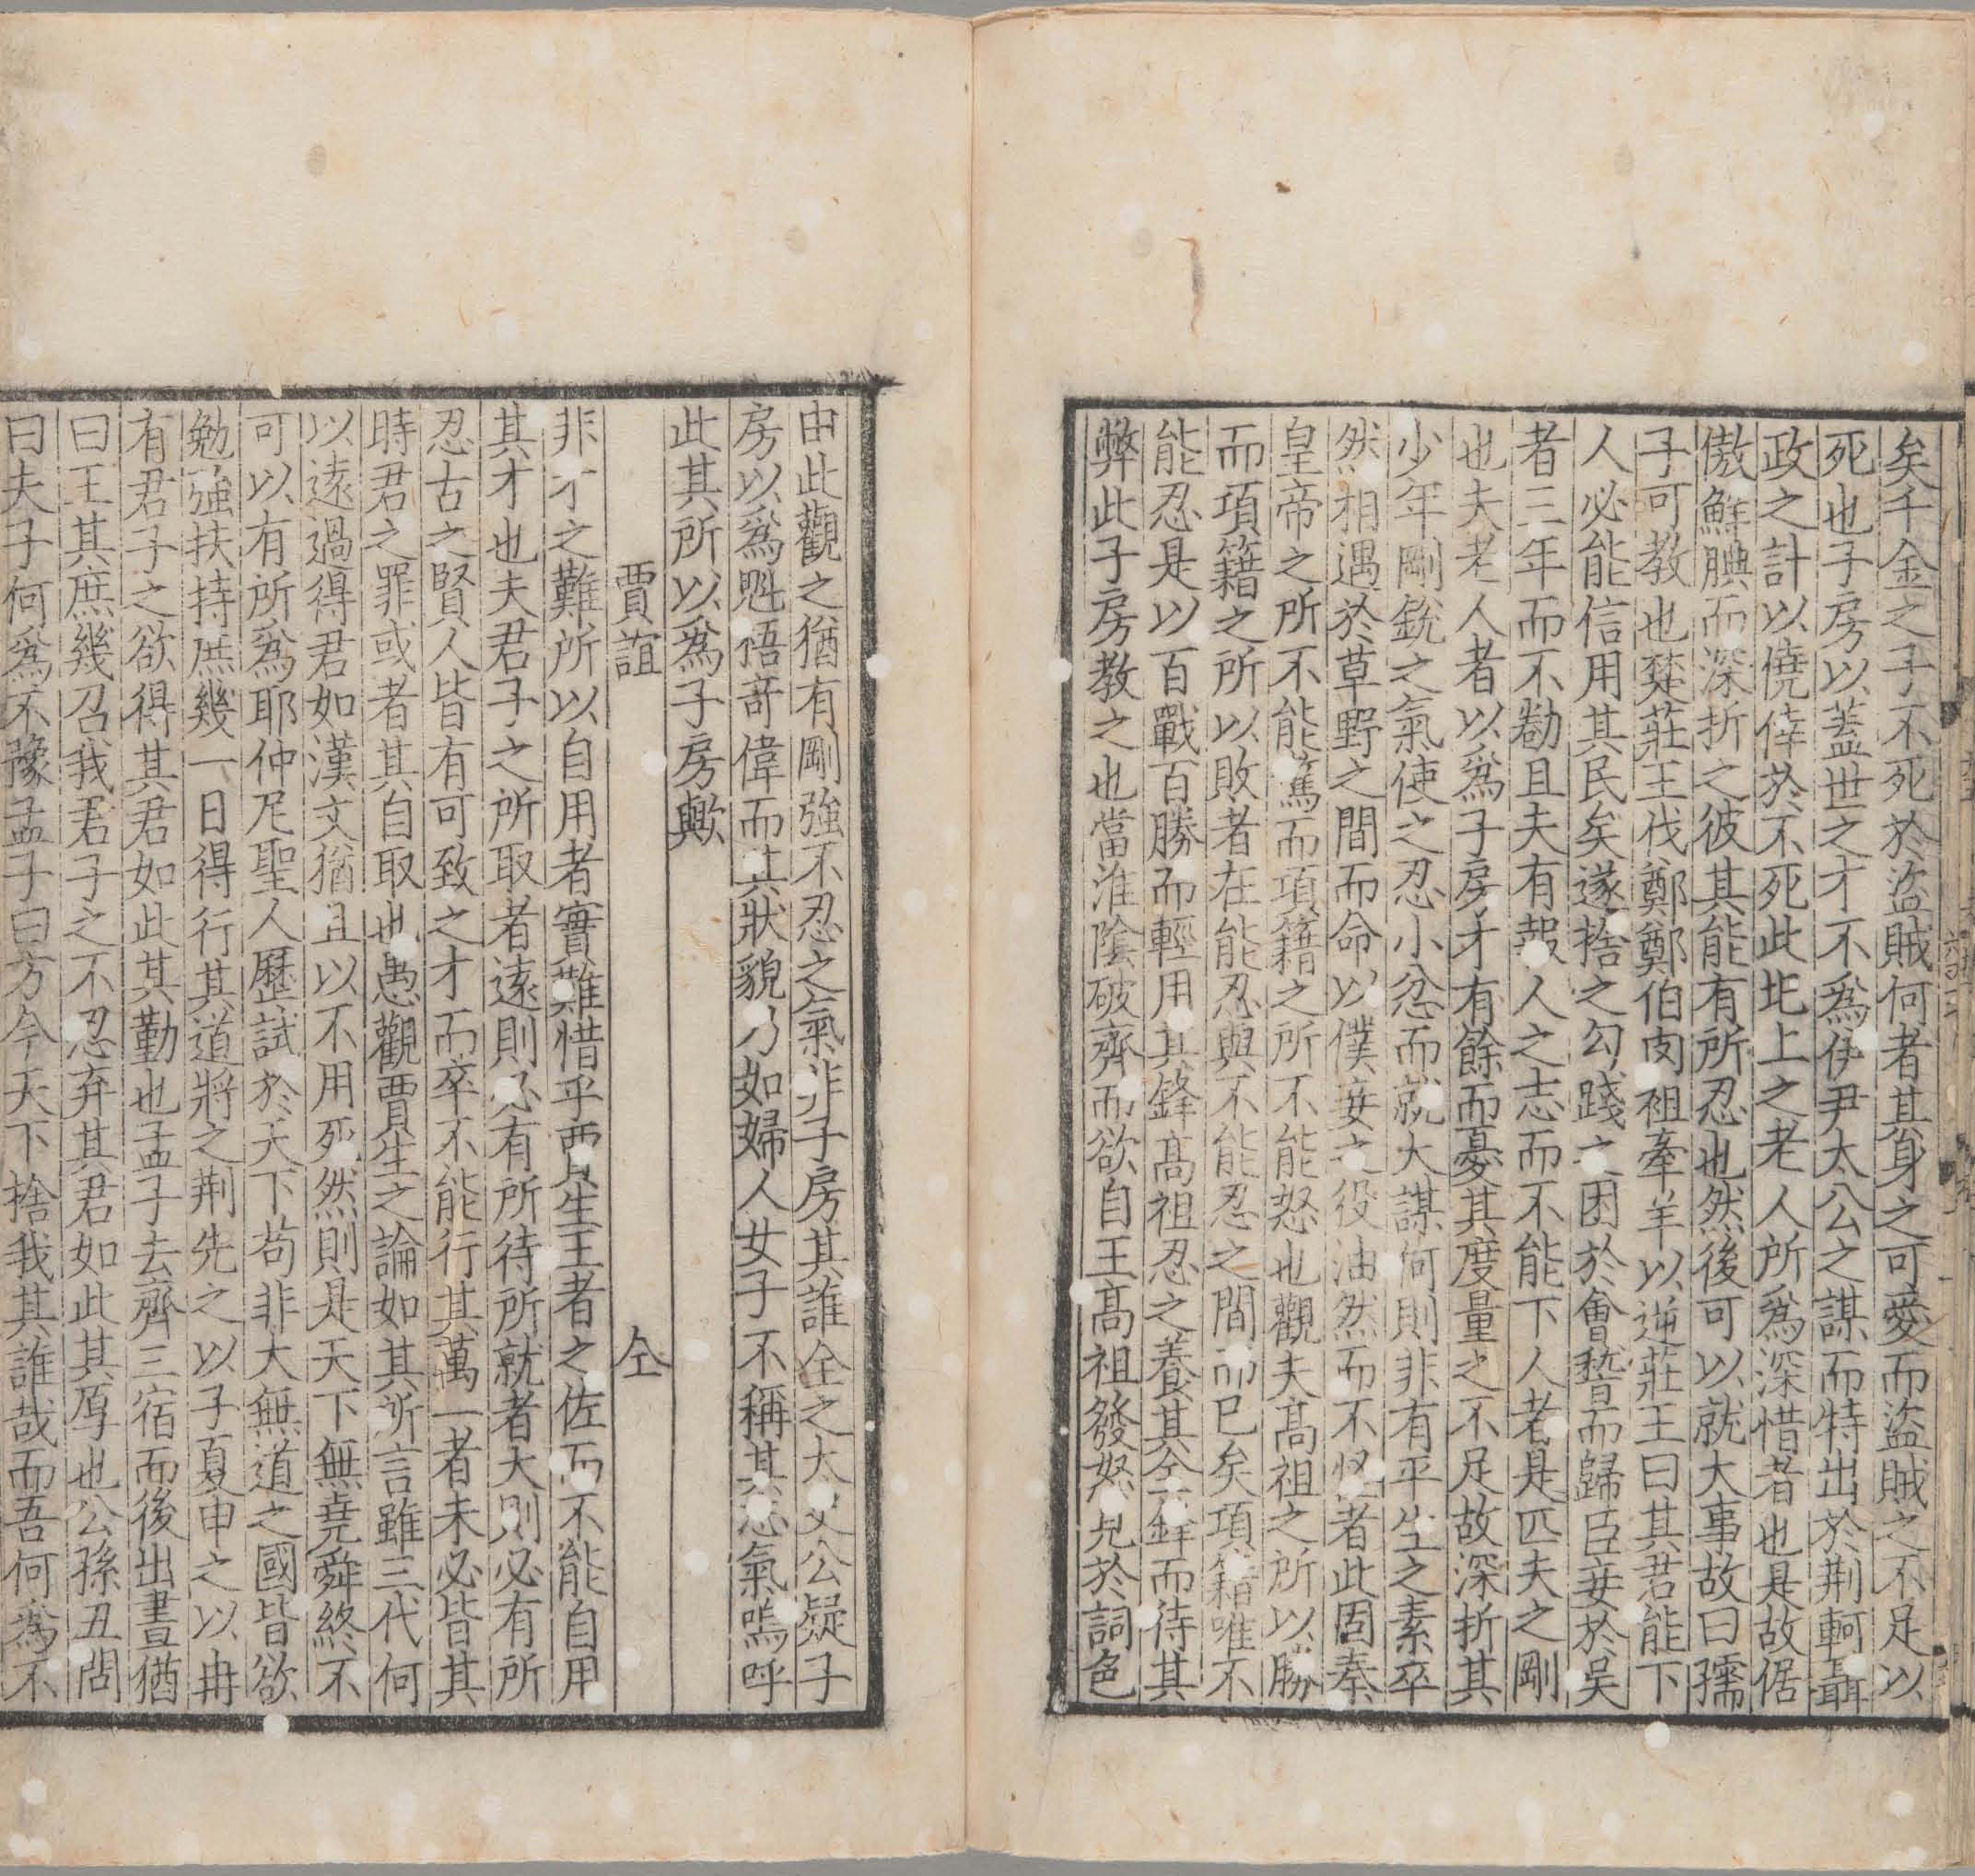 矣千金之子不死於盜賊何者其身之可愛而盜賊之不足以
死也子房以蓋世之才不為伊尹太公之謀而特出於荆軻聶
政之計以僥倖於不死此圯上之老人所為深惜者也是故倨
傲鮮腆而深折之彼其能有所忍也然後可以就大事故曰孺
子可教也楚莊王伐鄭鄭伯肉袒牽羊以逆莊王曰其君能下
人必能信用其民矣遂捨之勾踐之困於會稽而歸臣妾於吳
者三年而不勌且夫有報人之志而不能下人者是匹夫之剛
也夫老人者以為子房才有餘而憂其度量之不足故深折其
少年剛銳之氣使之忍小忿而就大謀何則非有平生之素卒
然相遇於草野之間而命以僕妾之役油然而不怪者此固秦
皇帝之所不能驚而項籍之所不能怒也觀夫高祖之所以勝
而項籍之所以敗者在能忍與不能忍之間而已矣項籍唯不
能忍是以百戰百勝而輕用其鋒高祖忍之養其全鋒而待其
弊此子房教之也當淮陰破齊而欲自王高祖發怒見於詞色
由此觀之猶有剛強不忍之氣非子房其誰全之太史公疑子
房以為魁梧奇偉而其狀貌乃如婦人女子不稱其志氣嗚呼
此其所以為子房歟
賈誼 仝
非才之難所以自用者實難惜乎賈生王者之佐而不能自用
其才也夫君子之所取者遠則必有所待所就者大則必有所
忍古之賢人皆有可致之才而卒不能行其萬一者未必皆其
時君之罪或者其自取也愚觀賈生之論如其所言雖三代何
以遠過得君如漢文猶且以不用死然則是天下無堯舜終不
可以有所為耶仲尼聖人歷試於天下苟非大無道之國皆欲
勉强扶持庶幾一日得行其道將之荆先之以子夏申之以冉
有君子之欲得其君如此其勤也孟子去齊三宿而後出晝猶
曰王其庶幾召我君子之不忍弃其君如此其厚也公孫丑問
曰夫子何為不豫孟子曰方今天下捨我其誰哉而吾何為不